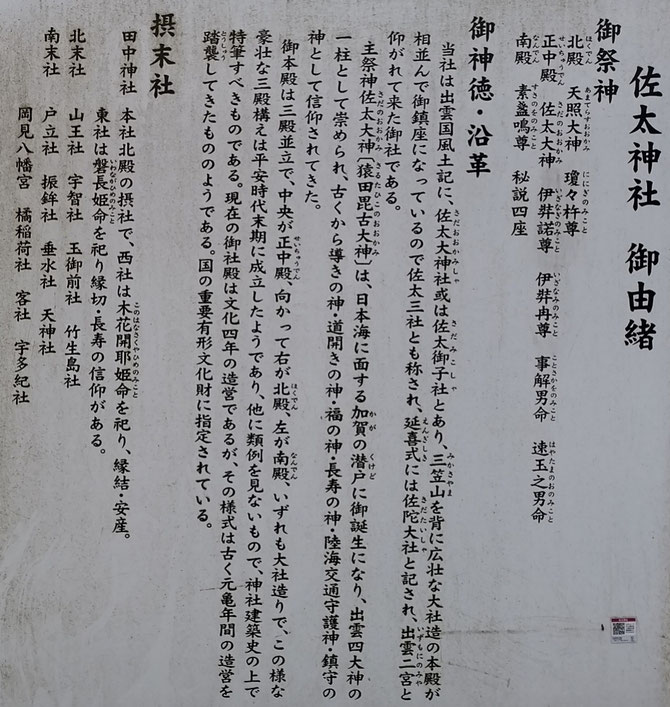 佐太神社 御由緒
御祭神
北殿 天照大神 瓊々杵尊
正中殿 佐太大神 伊弉諾尊 伊弉冉尊 事解男命 速玉之男命
南殿 素盞嗚尊 秘説四座
御神徳・沿革
当社は出雲国風土記に、佐太大神社或は佐太御子社とあり、三笠山を背に広壮な大社造の本殿が
相並んで御鎮座になっているので佐太三社とも称され、延喜式には佐陀大社と記され、出雲二宮と
仰がれて来た御社である。
主祭神佐太大神〔猿田毘古大神〕は、日本海に面する加賀の潜戸に御誕生になり、出雲四大神の
一柱として崇められ、古くから導きの神・道開きの神・福の神・長寿の神・陸海交通守護神・鎮守の
神として信仰されてきた。
御本殿は三殿並立で、中央が正中殿、向かって右が北殿、左が南殿、いずれも大社造りで、この様な
豪壮な三殿構えは平安時代末期に成立したようであり、他に類例を見ないもので、神社建築史の上で
特筆すべきものである。現在の御社殿は文化四年の造営であるが、その様式は古く元亀年間の造営を
踏襲してきたもののようである。国の重要有形文化財に指定されている。
摂末社
田中神社 本社北殿の摂社で、西社は木花開耶姫命を祀り、縁結・安産。
東社は磐長姫命を祀り縁切・長寿の信仰がある。
北末社 山王社 宇智社 玉御前社 竹生島社
南末社 戸立社 振鉾社 垂水社 天神社
岡見八幡宮 橘稲荷社 客社 宇多紀社